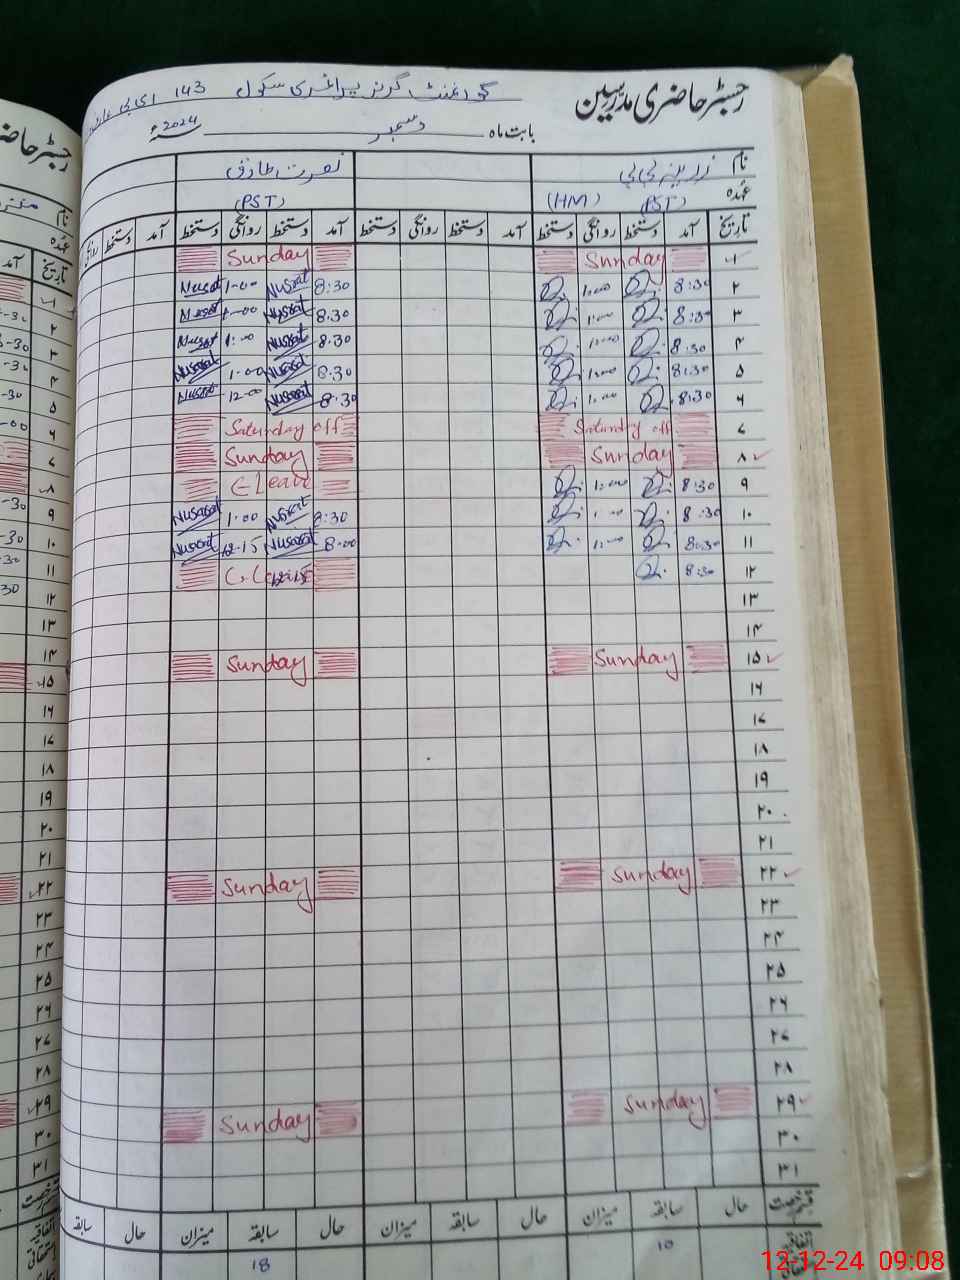 رجسٹر حاضری مدرسین
گورنمنٹ گرلز پرائمری سکول 143 ای بی
بابت ماہ دسمبر 2024ء
نام زرینہ بی بی نصرت طارق
عہدہ (PST) (HM) (PST)
تاریخ آمد دستخط روانگی دستخط آمد دستخط روانگی دستخط آمد دستخط روانگی
۱ Sunday Sunday
۲ 8:30 1:00 8:30 Nusrat 1-00 Nusrat
۳ 8:30 1:00 8.30 Nusrat 1-00 Nusrat
۴ 8:30 1:00 8.30 Nusrat 1:00 Nusrat
۵ 8:30 1:00 8.30 Nusrat 1-00 Nusrat
۶ 8:30 1:00 8.30 Nusrat 12-00 Nusrat
۷ Saturday off Saturday off
۸ Sunday Sunday
۹ 8:30 1:00 Leave
۱۰ 8:30 1:00 8:30 Nusrat 1-00 Nusrat
۱۱ 8:30 1:00 8-00 Nusrat 12-15 Nusrat
۱۲ 8:30 12-15
۱۳
۱۴
۱۵ Sunday Sunday
۱۶
۱۷
۱۸
۱۹
۲۰
۲۱
۲۲ Sunday Sunday
۲۳
۲۴
۲۵
۲۶
۲۷
۲۸
۲۹ Sunday Sunday
۳۰
۳۱
قسم رخصت حال سابقہ میزان حال سابقہ میزان حال سابقہ میزان حال سابقہ
اتفاقیہ 10 18
استحقاقی
12-12-24 09:08